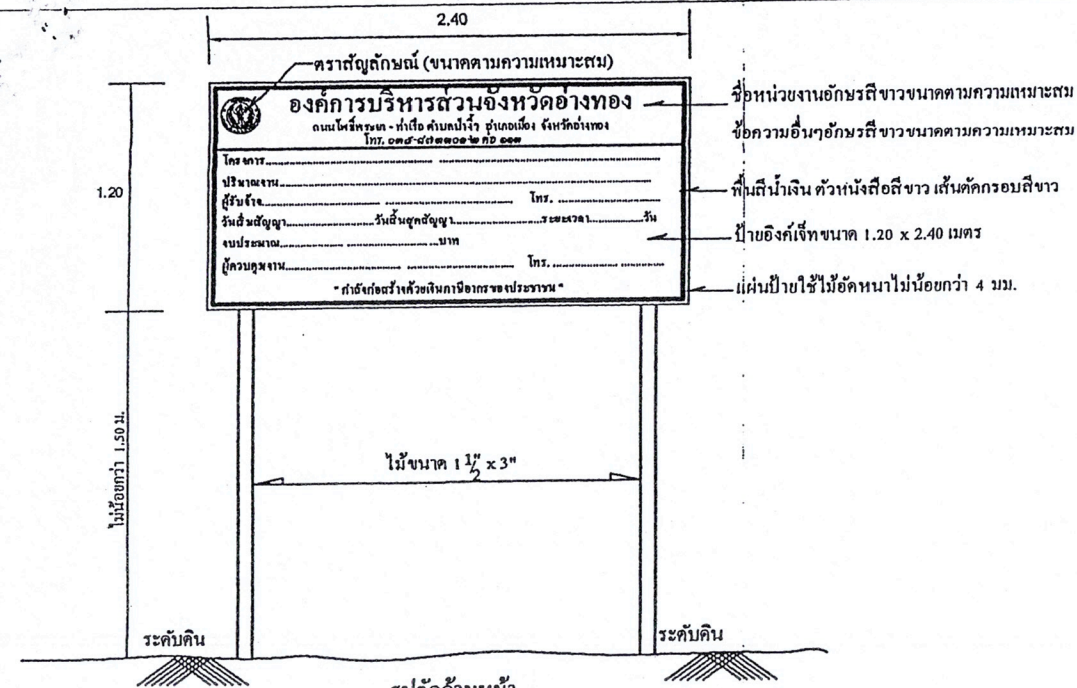 2.40
ตราสัญลักษณ์ (ขนาดตามความเหมาะสม)
องค์การบริหารส่วนจังหวัดอ่างทอง
ถนนโพธิ์พระยา - ท่าเรือ ตำบลป่างิ้ว อำเภอเมือง จังหวัดอ่างทอง
โทร.
โครงการ
ปริมาณงาน
ผู้รับจ้าง โทร.
วันเริ่มสัญญา วันสิ้นสุดสัญญา ระยะเวลา วัน
งบประมาณ บาท
ผู้ควบคุมงาน โทร.
" กำลังก่อสร้างด้วยเงินภาษีอากรของประชาชน "
ชื่อหน่วยงานอักษรสีขาวขนาดตามความเหมาะสม
ข้อความอื่นๆอักษรสีขาวขนาดตามความเหมาะสม
พื้นสีน้ำเงิน ตัวหนังสือสีขาว เส้นตัดกรอบสีขาว
ป้ายอิงค์เจ็ทขนาด 1.20 x 2.40 เมตร
แผ่นป้ายใช้ไม้อัดหนาไม่น้อยกว่า 4 มม.
1.20
ไม่น้อยกว่า 1.50 ม.
ไม้ขนาด 1 1/2" x 3"
ระดับดิน
ระดับดิน